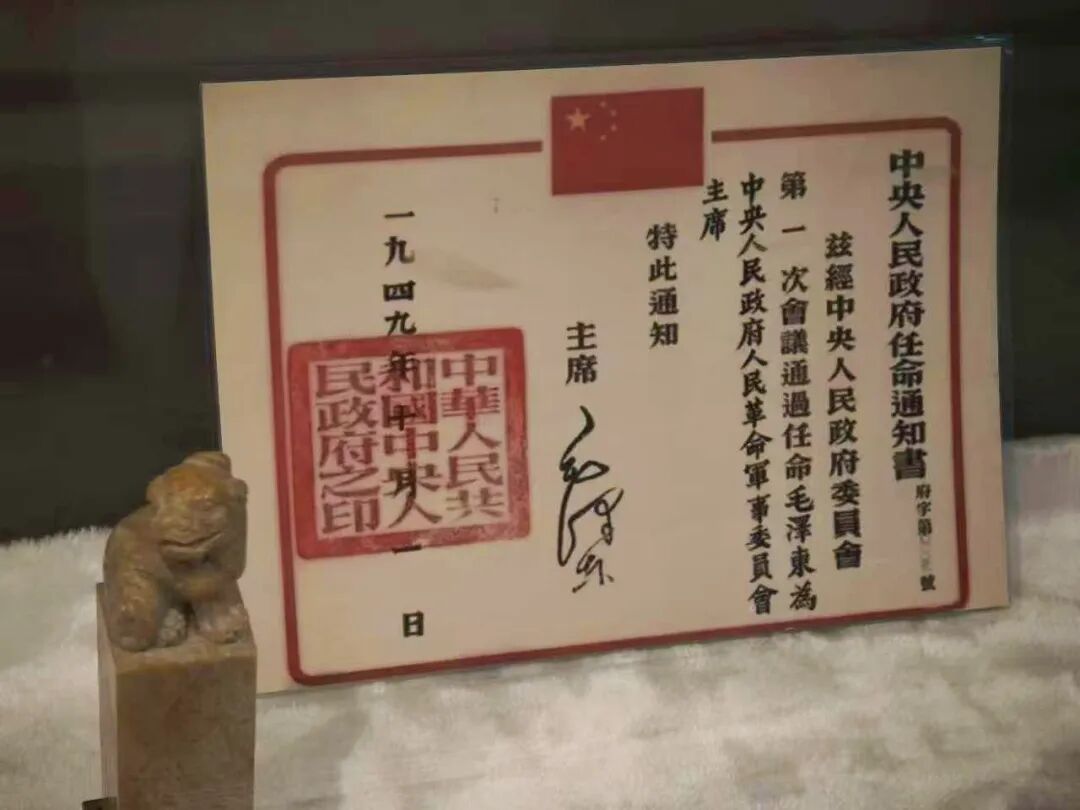 中央人民政府任命通知書
府字第 號
兹經中央人民政府委員會
第一次會議通過任命毛澤東為
中央人民政府人民革命軍事委員會
主席
特此通知
主席 毛澤東
一九四九年十月一日
中華人民共
和國中央人
民政府之印